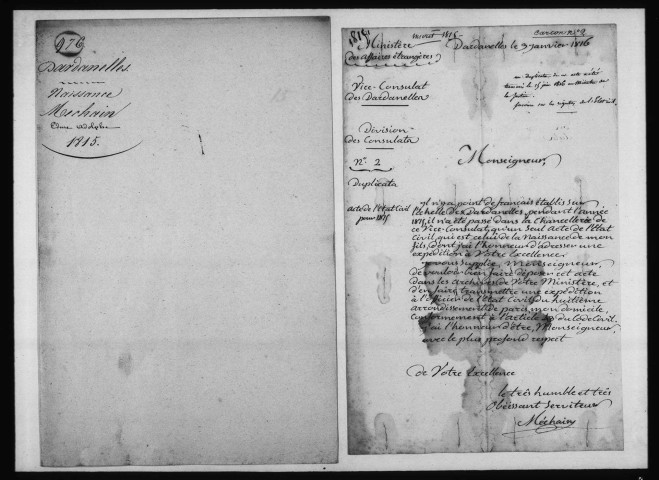 976
Dardanelles.
Naissance
Mechain
Edme
1815.
1815
Carton nº 9
Ministère
des Affaires étrangères
Dardanelles le 9 janvier 1816
un Duplicata de cet acte a été
transmis le 15 juin 1816 au Ministère de
la Justice.
Vice-Consulat
des Dardanelles
Division
des Consulats
Nº 2
Monseigneur,
Duplicata
acte de l'Etat Civil
pour 1815
Il n'y a point de français établis sur
l'échelle des Dardanelles, pendant l'année
1815, il n'a été passé dans la Chancellerie de
ce Vice-Consulat qu'un seul acte de l'Etat
Civil, qui est celui de la Naissance de mon
fils, dont j'ai l'honneur d'adresser une
expédition à Votre Excellence.
je vous supplie, Monseigneur,
de vouloir bien faire déposer cet acte
dans les archives de Votre Ministère, et
d'en faire transmettre une expédition
à l'officier de l'Etat Civil du huitième
arrondissement de paris, mon domicile,
conformément à l'article du Code Civil.
j'ai l'honneur d'être, Monseigneur,
avec le plus profond respect
de Votre Excellence
le très humble et très
Obéissant Serviteur
Méchain